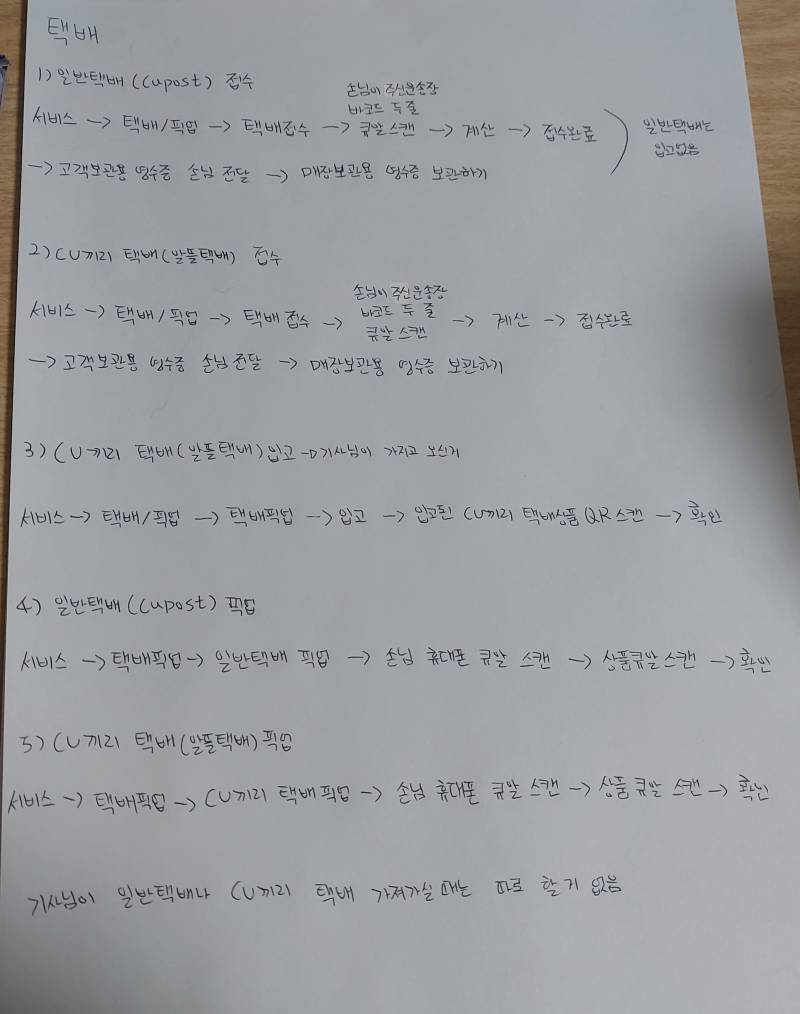 택배
1) 일반택배(CUpost) 접수
손님이 주신운송장
바코드 두 줄
서비스 → 택배/픽업 → 택배접수 → 큐알스캔 → 계산 → 접수완료
일반택배는
입고없음
→ 고객보관용 영수증 손님 전달 → 매장보관용 영수증 보관하기
2) CU끼리 택배(알뜰택배) 접수
손님이 주신운송장
바코드 두 줄
서비스 → 택배/픽업 → 택배접수 → 큐알 스캔 → 계산 → 접수완료
→ 고객보관용 영수증 손님 전달 → 매장보관용 영수증 보관하기
3) CU끼리 택배(알뜰택배) 입고 → 기사님이 가지고 오신거
서비스 → 택배/픽업 → 택배픽업 → 입고 → 입고된 CU끼리 택배상품 QR스캔 → 확인
4) 일반택배(CUpost) 픽업
서비스 → 택배픽업 → 일반택배 픽업 → 손님 휴대폰 큐알 스캔 → 상품큐알스캔 → 확인
5) CU끼리 택배(알뜰택배) 픽업
서비스 → 택배픽업 → CU끼리 택배픽업 → 손님 휴대폰 큐알 스캔 → 상품큐알 스캔 → 확인
기사님이 일반택배나 CU끼리 택배 가져가실때는 따로 할거 없음